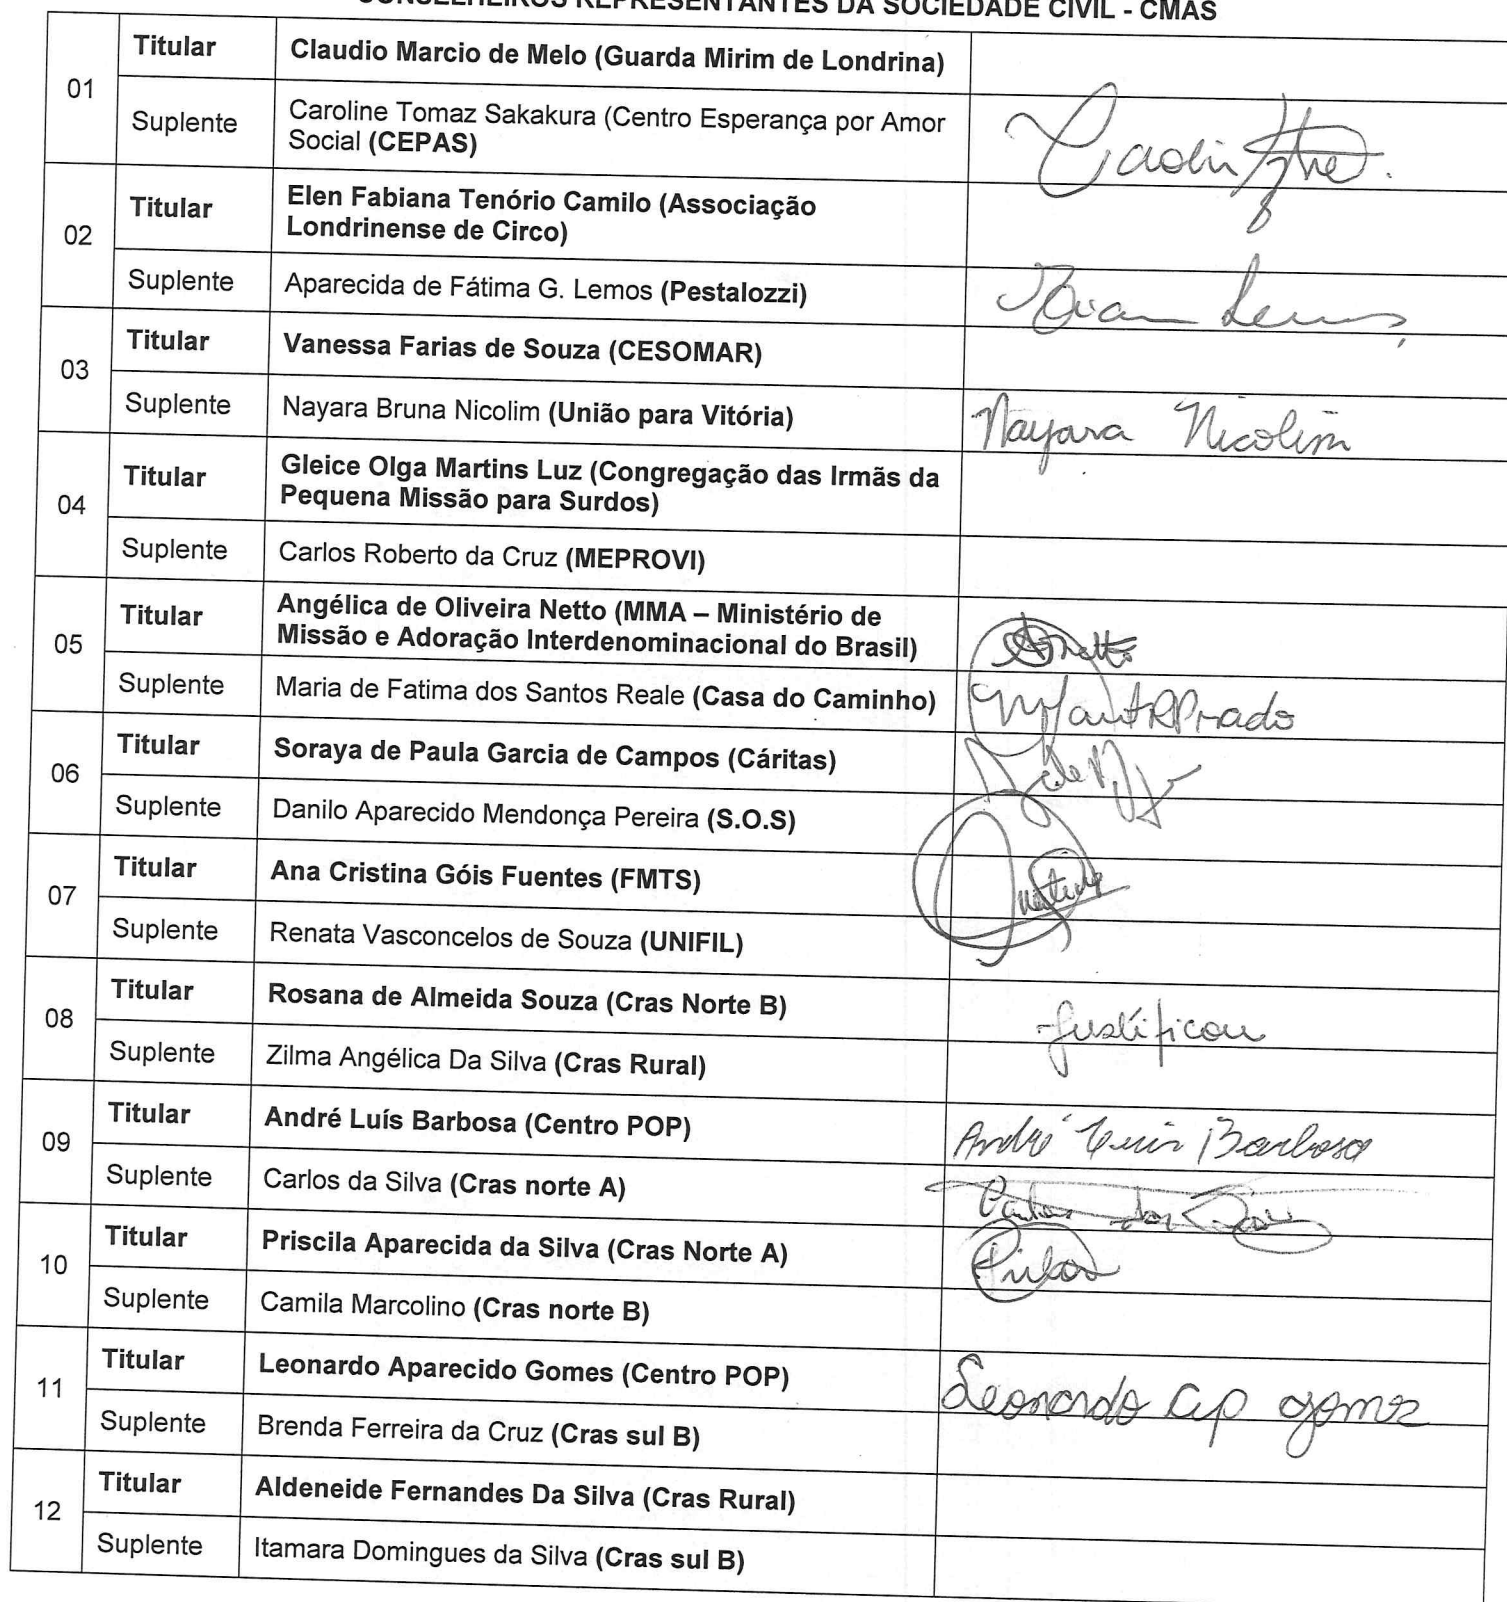 CONSELHEIROS REPRESENTANTES DA SOCIEDADE CIVIL - CMAS
01
Titular Claudio Marcio de Melo (Guarda Mirim de Londrina)
Suplente Caroline Tomaz Sakakura (Centro Esperança por Amor
Social (CEPAS)
02
Titular Elen Fabiana Tenório Camilo (Associação
Londrinense de Circo)
Suplente Aparecida de Fátima G. Lemos (Pestalozzi) Lemos
03
Titular Vanessa Farias de Souza (CESOMAR)
Suplente Nayara Bruna Nicolim (União para Vitória) Nayara Nicolim
04
Titular Gleice Olga Martins Luz (Congregação das Irmãs da
Pequena Missão para Surdos)
Suplente Carlos Roberto da Cruz (MEPROVI)
05
Titular Angélica de Oliveira Netto (MMA – Ministério de
Missão e Adoração Interdenominacional do Brasil) ANetto
Suplente Maria de Fatima dos Santos Reale (Casa do Caminho)
06
Titular Soraya de Paula Garcia de Campos (Cáritas)
Suplente Danilo Aparecido Mendonça Pereira (S.O.S)
07
Titular Ana Cristina Góis Fuentes (FMTS)
Suplente Renata Vasconcelos de Souza (UNIFIL)
08
Titular Rosana de Almeida Souza (Cras Norte B) Justificou
Suplente Zilma Angélica Da Silva (Cras Rural)
09
Titular André Luís Barbosa (Centro POP) André Luis Barbosa
Suplente Carlos da Silva (Cras norte A)
10
Titular Priscila Aparecida da Silva (Cras Norte A)
Suplente Camila Marcolino (Cras norte B)
11
Titular Leonardo Aparecido Gomes (Centro POP) Leonardo Ap gomes
Suplente Brenda Ferreira da Cruz (Cras sul B)
12
Titular Aldeneide Fernandes Da Silva (Cras Rural)
Suplente Itamara Domingues da Silva (Cras sul B)